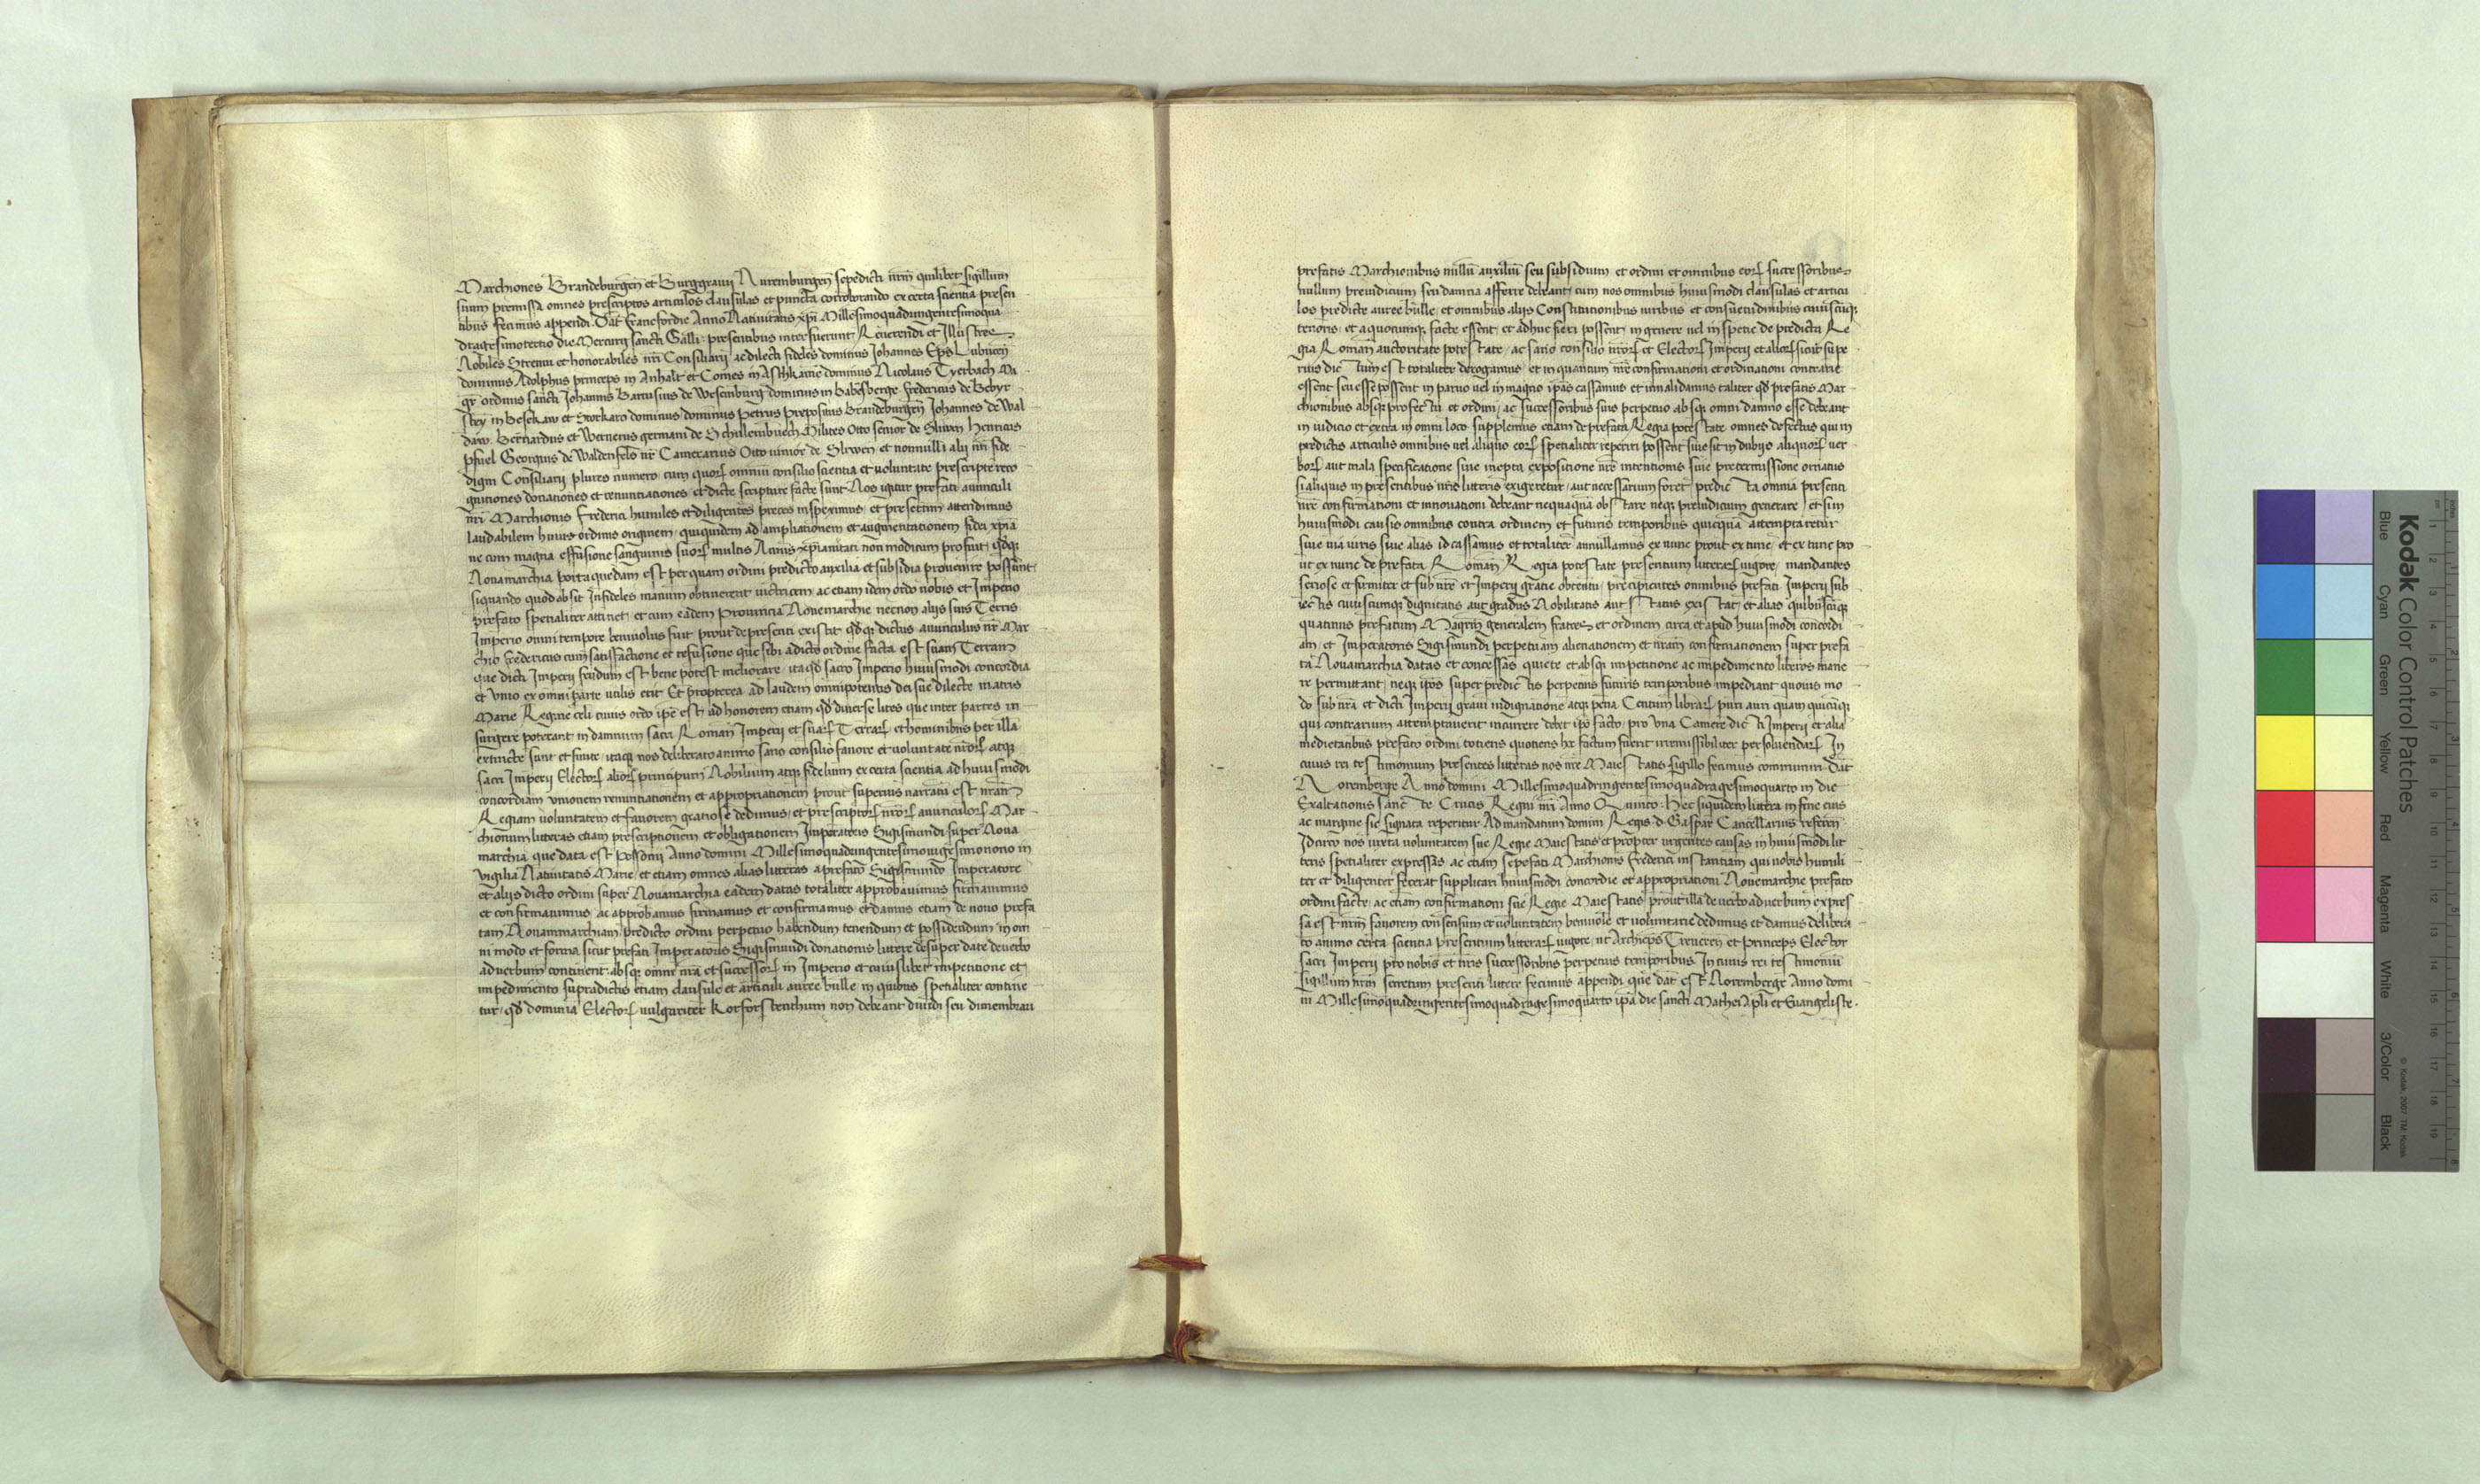 Marchiones Brandeburgen̄ et Burggravii Nuremburgen̄ sepedicti nr̄m quilibet sigillum
suum premissa omnes prescriptos articulos clausulas et puncta corroborando ex certa scientia presen
tibus fecimus appendi. Dat̄ francfordie Anno Nativitatis xpī Millesimoquadringentesimoqua
dragesimotertio die Mercurii sancti Galli: presentibus interfuerunt Reverendi et Illustres
Nobiles Strenui et honorabiles nr̄i Consiliarii ac dilecti fideles dominus Johannes Ep̄s Lubucen̄
dominus Adolphus princeps in Anhalt et Comes in Aschkanie dominus Nicolaus Tyerbach Ma
gr̄ ordinis sancti Johannis Baltisius de Wesenburg dominus in Babesberge fredericus de Bebyr
stey in Beskaw et Storkaw dominus dominus Petrus prepositus Brandeburgen̄ Johannes de Wal
daw Bernardus et Wernerus germani de Schulemburch Milites Otto senior de Sliwen Henricus
pfuel Georgius de Waldenfels nr̄ Camerarius Otto iunior de Sliwen et nonnulli alij nr̄i fide
digni Consiliarii plures numero cum quorꝝ omniū consilio scientia et voluntate prescripte reco
gnitiones donationes et renuntiationes et dicte scripture facte sunt Nos igitur prefati avunculi
nr̄i Marchionis frederici humiles et diligentes preces inspeximus et presertim attendimus
laudabilem huius ordinis originem, quiquidem ad ampliationem et augmentationem fidei xp̄ia
ne cum magna effusione sanguinis suorꝝ multis Annis xp̄ianitati non modicum profuit qdq̄
Novamarchia porta quedam est per quam ordini predicto auxilia et subsidia provenire possunt
siquando quod absit Infideles manum obtinerent victricem, ac etiam idem ordo nobis et Imperio
prefato spetialiter attinet, et cum eadem Provincia Novemarchie necnon alijs suis Terris
Imperio omni tempore benivolus fuit prout depresenti existit qdq̄ dictus avunculus nr̄ Mar
chio fredericus cum satisfactione et refusione que sibi a dicto ordine facta est suam Terram
que dicti Imperij feudum est bene potest meliorare, ita qd̄ sacro Imperio huiusmodi concordia
et Unio ex omni parte utilis erit Et propterea ad laudem omnipotentis dei sue dilecte matris
Marie Regine celi cuius ordo ipē est, ad honorem etiam qd̄ diverse lites que inter partes in
surgere poterant in damnum sacri Roman̄ Imperij et suarꝝ Terrarꝝ et hominibus per illa
extincte sunt et finite, itaq̄ nos deliberato animo sano consilio favore et voluntate nr̄orꝝ atq̄
sacri Imperij Electorꝝ aliorꝝ principum Nobilium atq̄ fidelium ex certa scientia ad huiusmodi
concordiam unionem renuntiationem et appropriationem prout superius narratū est nr̄am
Regiam voluntatem et favorem gratiose dedimus, et prescriptorꝝ nr̄orꝝ avunculorꝝ Mar
chionum litteras etiam prescriptionem et obligationem Imperatoris Sigismundi super Nova
marchia que data est Possonij Anno domini Millesimoquadringentesimovigesimonono in
vigilia Nativitatis Marie, et etiam omnes alias litteras a prefato Sigismundo Imperatore
et alijs dicto ordini super Novamarchia eadem datas totaliter approbavimus firmavimus
et confirmavimus, ac approbamus firmamus et confirmamus et damus etiam de novo prefa
tam Novammarchiam predicto ordini perpetuo habendum tenendum et possidendum in om
ni modo et forma sicut prefati Imperatoris Sigismundi donationis littere desuper date de verbo
ad verbum continent, absq̄ omni nr̄a et successorꝝ in Imperio et cuiuslibet impetitione et
impedimento supradictis etiam clausule et articuli auree bulle in quibus spetialiter contine
tur, qd̄ dominia Electorꝝ vulgariter korforstenthum non debeant dividi seu dimembrari
prefatis Marchionibus nullū auxiliū seu subsidium et ordini et omnibus eorꝝ successoribus
nullum preiudicium seu damna afferre debeant, cum nos omnibus huiusmodi clausulas et articu
los predicte auree bulle, et omnibus alijs Constitutionibus iuribus et consuetudinibus cuiuscūq̄
tenoris, et a quocumq̄ facte essent, et adhuc fieri possent, in genere vel in spetie de predicta Re
gia Roman̄ auctoritate potestate, ac sano consilio nr̄orꝝ et Electorꝝ Imperij et aliorꝝ sicut supe
rius dictum est totaliter derogamus, et in quantum nr̄e confirmationi et ordinationi contrarie
essent seu esse possent in parvo vel in magno ipās cassamus et invalidamus taliter qd̄ prefatis Mar
chionibus absq̄ profectu et ordini, ac successoribus suis perpetuo absq̄ omni damno esse debeant
in iudicio et extra in omni loco supplemus etiam de prefata Regia potestate omnes defectus qui in
predictis articulis omnibus vel aliquo eorꝝ spetialiter reperiri possent sive sit in dubijs aliquorꝝ ver
borꝝ aut mala specificatione sive inepta expositione nr̄e intentionis sive pretermissione ornatus
si aliquis in presentibus nr̄is litteris exigeretur, aut necessarium foret, predicta omnia presenti
nr̄e confirmationi et innovationi debeant nequaquā obstare neq̄ preiudicium generare, et si in
huiusmodi causis omnibus contra ordinem et futuris temporibus quicquā attemptaretur
sive via iuris sive alias id cassamus et totaliter annullamus ex nunc prout ex tunc, et ex tunc pro
ut ex nunc de prefata Roman̄ Regia potestate presentium litterarꝝ vigore, mandantes
seriose et firmiter et sub nr̄e et Imperij gratie obtentu, precipientes omnibus prefati Imperij sub
iectis cuiuscumq̄ dignitatis aut gradus Nobilitatis aut status existat, et alias quibuscūq̄
quatinus prefatum Magr̄m generalem fratres et ordinem circa et apud huiusmodi concordi
am, et Imperatoris Sigismundi perpetuam alienationem et nr̄am confirmationem super prefa
ta Novamarchia datas et concessas quiete et absq̄ impetitione ac impedimento liberos mane
re permittant, neq̄ ipōs super predictis perpetuis futuris temporibus impediant quovis mo
do sub nr̄a et dicti Imperij gravi indignatione atq̄ pena Centum librarꝝ puri auri quam quicūq̄
qui contrarium attemptaverit incurrere debet ipō facto, pro una Camere dicti Imperij et alia
medietatibus prefato ordini totiens quotiens hr̄ factum fuerit irremissibiliter persolvendarꝝ In
cuius rei testimonium presentes litteras nos nr̄e Maiestatis sigillo fecimus communiri Dat̄
Noremberge Anno domini Millesimoquadringentesimoquadragesimoquarto in die
Exaltationis sancte Crucis Regni nr̄i Anno Quinto: Hec siquidem littera in fine eius
ac margine sic signata reperitur Ad mandatum domini Regis d Gaspar Cancellarius referen̄
Idcirco nos iuxta voluntatem sue Regie Maiestatis et propter urgentes causas in huiusmodi lit
teris spetialiter expressas ac etiam sepefati Marchionis frederici instantiam qui nobis humili
ter et diligenter fecerat supplicari huiusmodi concordie et appropriationi Novemarchie prefato
ordini facte, ac etiam confirmationi sue Regie Maiestatis prout illa de verbo ad verbum expres
sa est nr̄m favorem consensum et voluntatem benivole et voluntarie dedimus et damus delibera
to animo certa scientia presentium litterarꝝ vigore, ut Archiep̄s Treveren̄ et princeps Elector
sacri Imperij pro nobis et nr̄is successoribus perpetuis temporibus In cuius rei testimoniū
sigillum nr̄m secretum presenti littere fecimus appendi que dat̄ est Noremberge Anno domi
ni Millesimoquadringentesimoquadragesimoquarto ipā die sancti Mathei Apl̄i et Evangeliste.
Kodak Color Control Patches
Blue Cyan Green Yellow Red Magenta White 3/Color Black
© Kodak, 2007 TM: Kodak